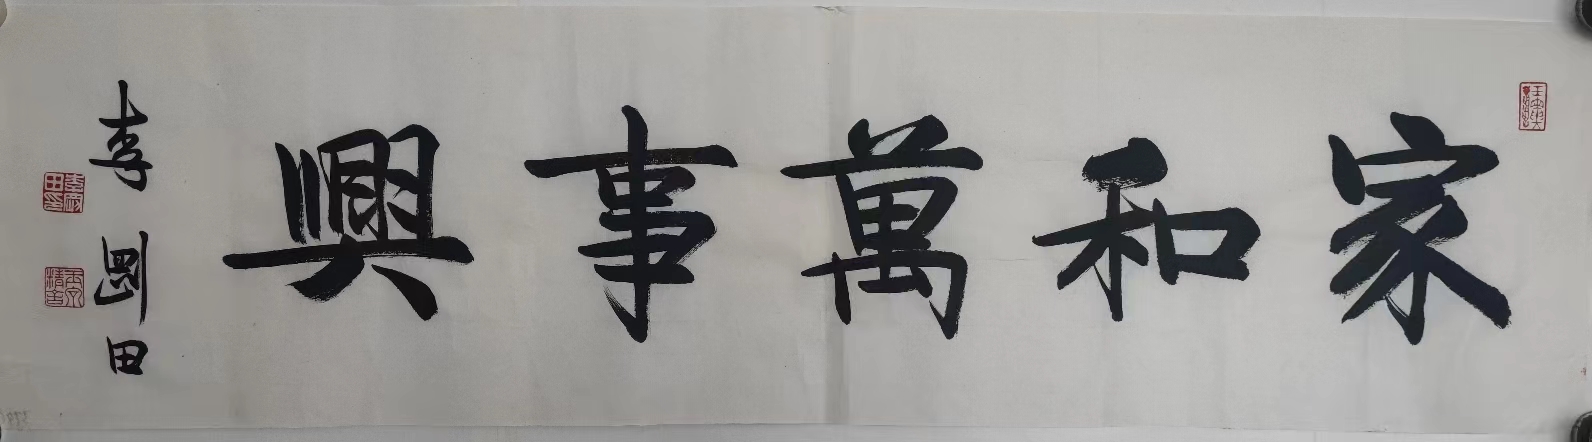 家和萬事興
李剛田